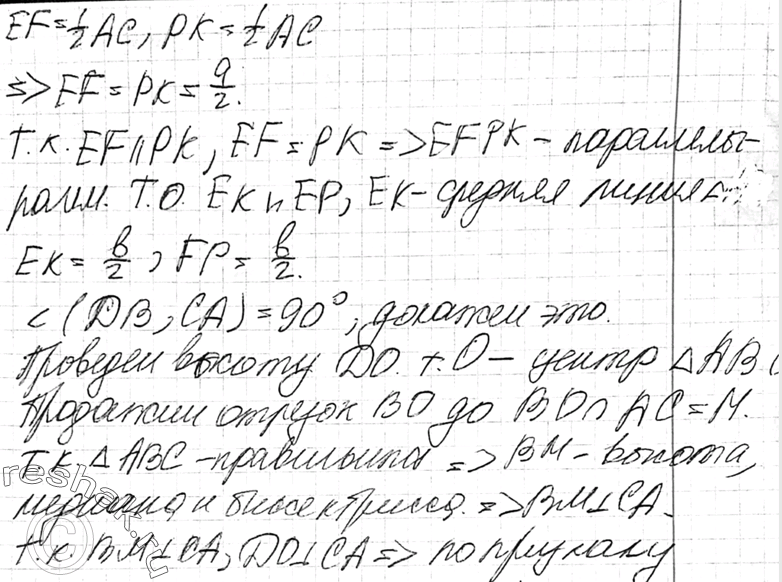 EF = 1/2 AC, PK = 1/2 AC
=> EF = PK = a/2.
т.к. EF || PK, EF = PK => EFPK - параллелог-
рамм. Т.О. EK и EP, EK - средняя линия △
EK = b/2, FP = b/2.
∠(DB, CA) = 90°, докажем это.
Проведем высоту DO. т. O - центр △ABC
Продолжим отрезок BO до BO ∩ AC = M.
т.к. △ABC - правильный => BM - высота,
медиана и биссектрисса. => BM ⊥ CA.
т.к. BM ⊥ CA, DO ⊥ CA => по признаку
reshak.ru
©